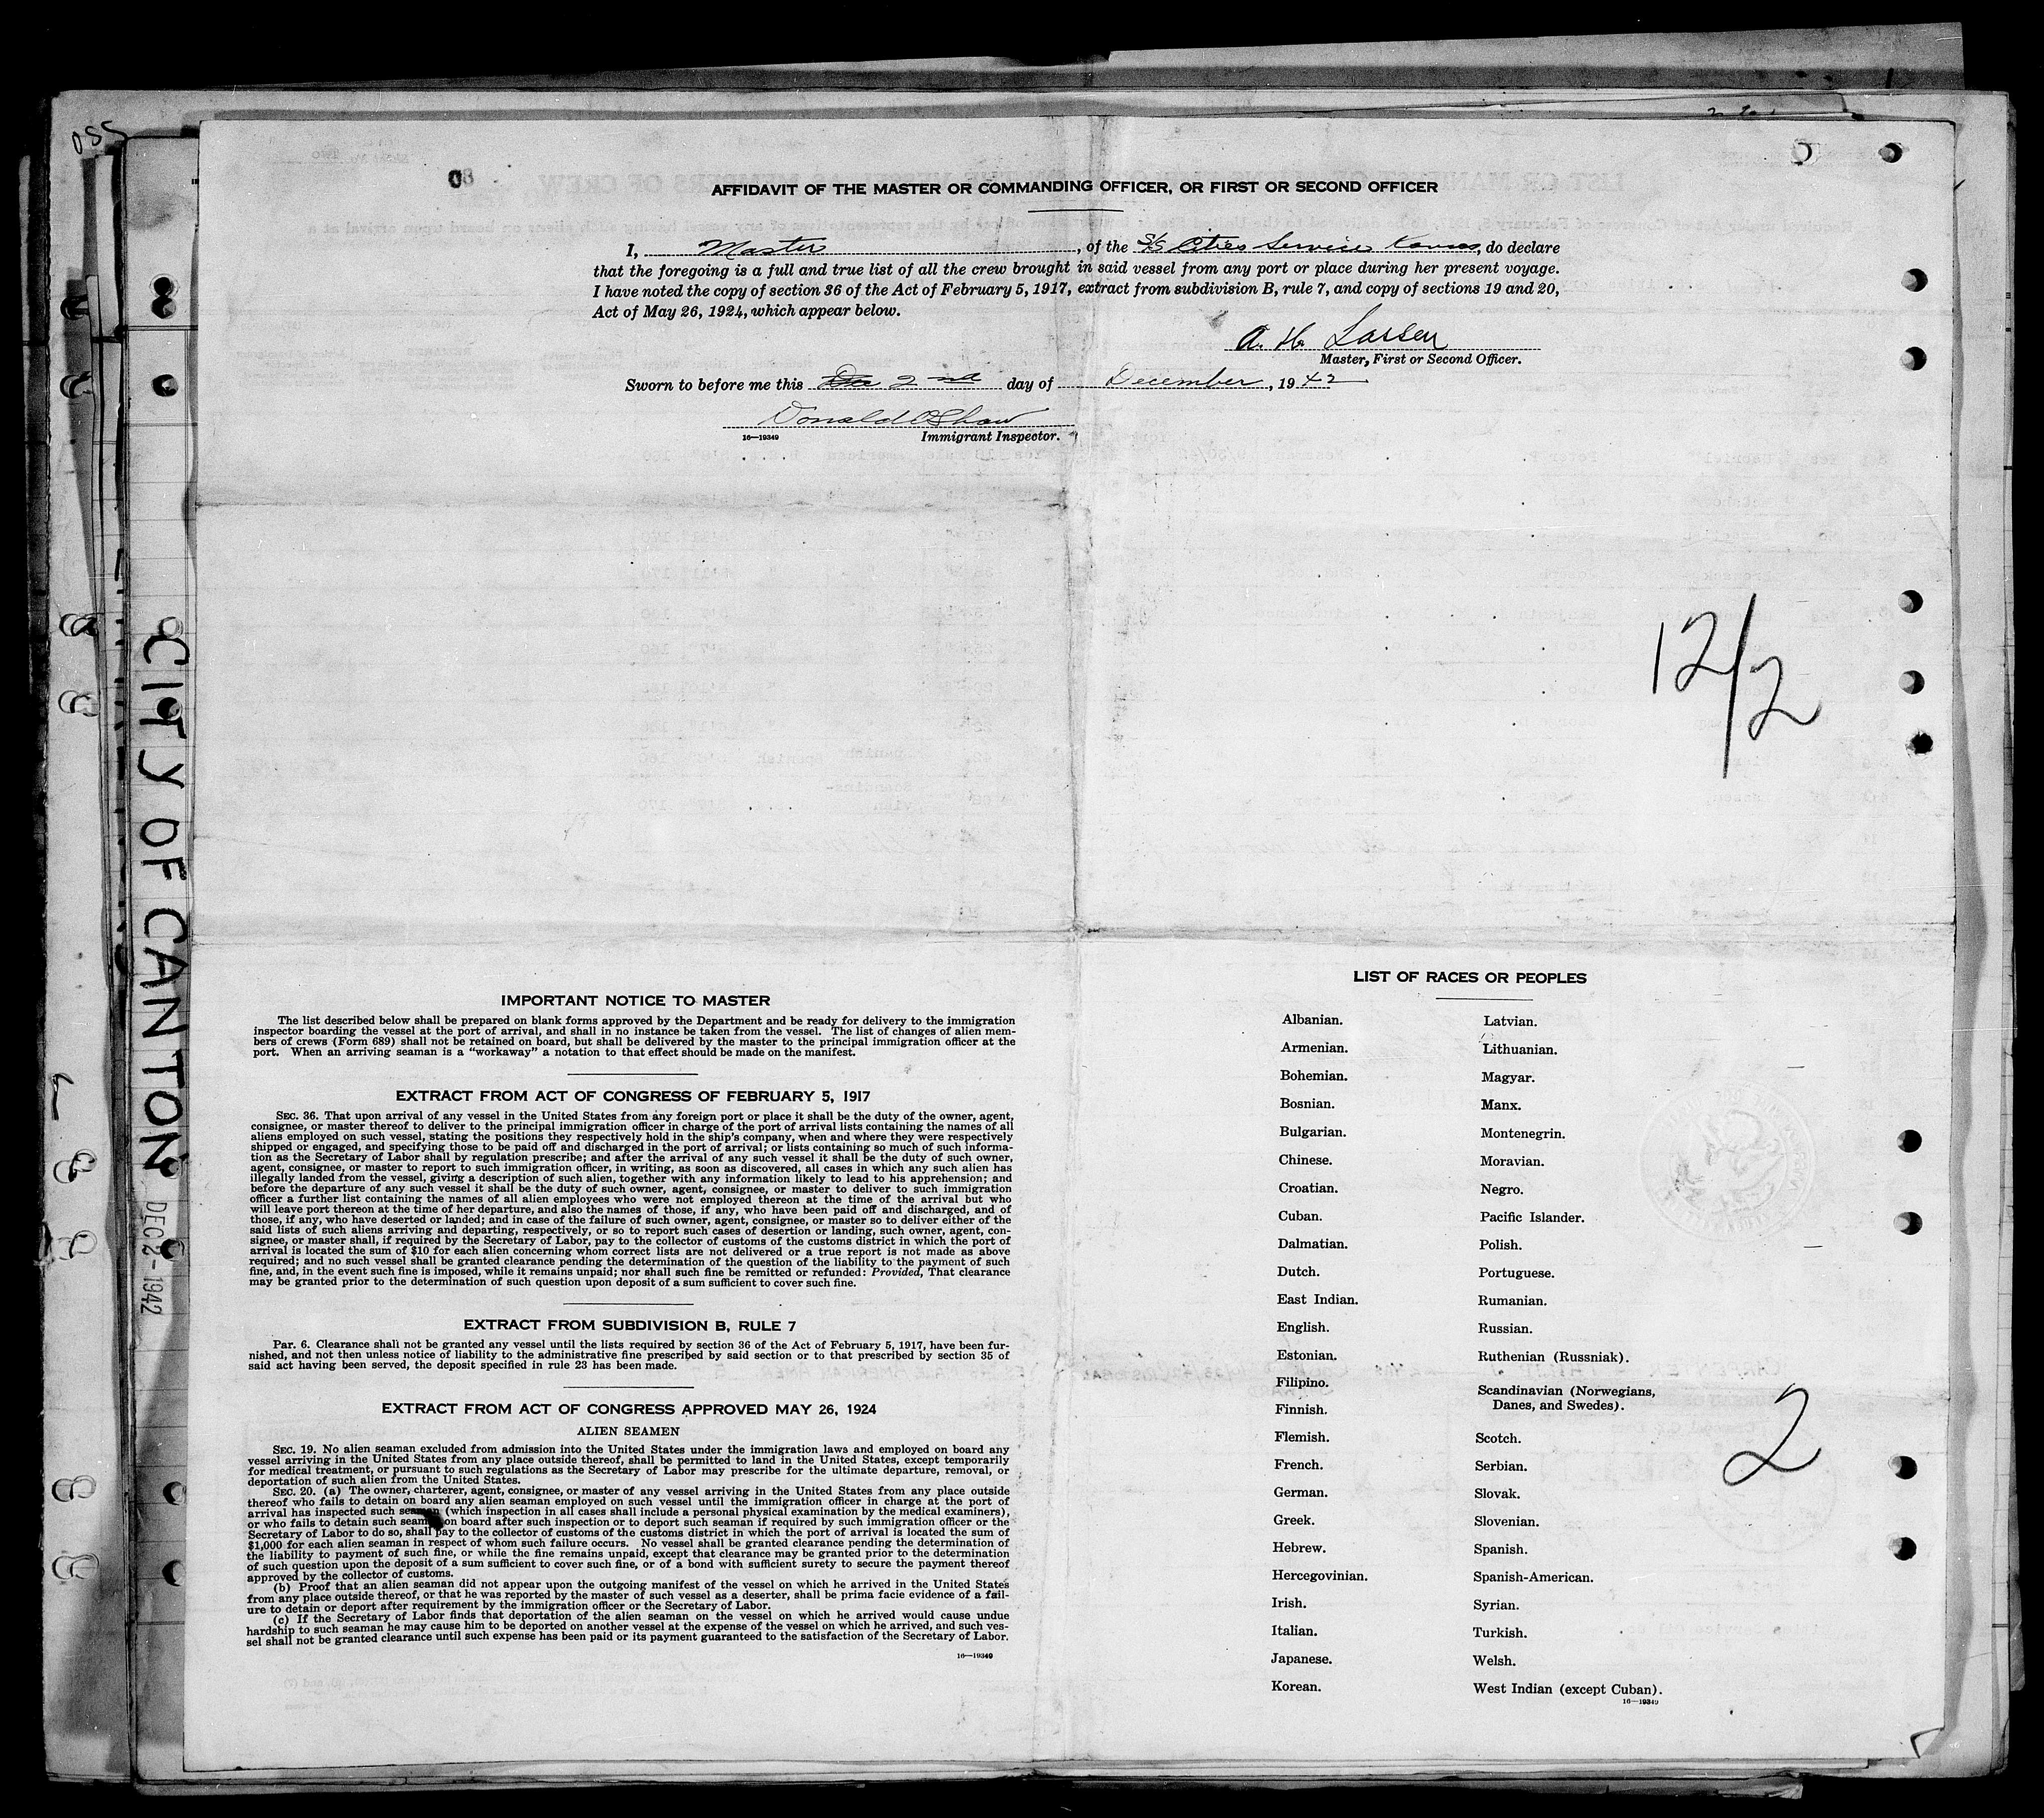 055
08
AFFIDAVIT OF THE MASTER OR COMMANDING OFFICER, OR FIRST OR SECOND OFFICER
I, Master, of the S/S Cities Service Kansas, do declare
that the foregoing is a full and true list of all the crew brought in said vessel from any port or place during her present voyage.
I have noted the copy of section 36 of the Act of February 5, 1917, extract from subdivision B, rule 7, and copy of sections 19 and 20,
Act of May 26, 1924, which appear below.
A. H. Larsen
Master, First or Second Officer.
Sworn to before me this 2nd day of December, 1942
Donald O Shaw
16—19349 Immigrant Inspector.
12/2
CITY OF CANTON
DEC 2 - 1942
IMPORTANT NOTICE TO MASTER
The list described below shall be prepared on blank forms approved by the Department and be ready for delivery to the immigration
inspector boarding the vessel at the port of arrival, and shall in no instance be taken from the vessel. The list of changes of alien mem-
bers of crews (Form 689) shall not be retained on board, but shall be delivered by the master to the principal immigration officer at the
port. When an arriving seaman is a "workaway" a notation to that effect should be made on the manifest.
EXTRACT FROM ACT OF CONGRESS OF FEBRUARY 5, 1917
SEC. 36. That upon arrival of any vessel in the United States from any foreign port or place it shall be the duty of the owner, agent,
consignee, or master thereof to deliver to the principal immigration officer in charge of the port of arrival lists containing the names of all
aliens employed on such vessel, stating the positions they respectively hold in the ship's company, when and where they were respectively
shipped or engaged, and specifying those to be paid off and discharged in the port of arrival; or lists containing so much of such informa-
tion as the Secretary of Labor shall by regulation prescribe; and after the arrival of any such vessel it shall be the duty of such owner,
agent, consignee, or master to report to such immigration officer, in writing, as soon as discovered, all cases in which any such alien has
illegally landed from the vessel, giving a description of such alien, together with any information likely to lead to his apprehension; and
before the departure of any such vessel it shall be the duty of such owner, agent, consignee, or master to deliver to such immigration
officer a further list containing the names of all alien employees who were not employed thereon at the time of the arrival but who
will leave port thereon at the time of her departure, and also the names of those, if any, who have been paid off and discharged, and of
those, if any, who have deserted or landed; and in case of the failure of such owner, agent, consignee, or master so to deliver either of the
said lists of such aliens arriving and departing, respectively, or so to report such cases of desertion or landing, such owner, agent, con-
signee, or master shall, if required by the Secretary of Labor, pay to the collector of customs of the customs district in which the port of
arrival is located the sum of $10 for each alien concerning whom correct lists are not delivered or a true report is not made as above
required; and no such vessel shall be granted clearance pending the determination of the question of the liability to the payment of such
fine, and, in the event such fine is imposed, while it remains unpaid; nor shall such fine be remitted or refunded: Provided, That clearance
may be granted prior to the determination of such question upon deposit of a sum sufficient to cover such fine.
EXTRACT FROM SUBDIVISION B, RULE 7
Par. 6. Clearance shall not be granted any vessel until the lists required by section 36 of the Act of February 5, 1917, have been fur-
nished, and not then unless notice of liability to the administrative fine prescribed by said section or to that prescribed by section 35 of
said act having been served, the deposit specified in rule 23 has been made.
EXTRACT FROM ACT OF CONGRESS APPROVED MAY 26, 1924
ALIEN SEAMEN
SEC. 19. No alien seaman excluded from admission into the United States under the immigration laws and employed on board any
vessel arriving in the United States from any place outside thereof, shall be permitted to land in the United States, except temporarily
for medical treatment, or pursuant to such regulations as the Secretary of Labor may prescribe for the ultimate departure, removal, or
deportation of such alien from the United States.
SEC. 20. (a) The owner, charterer, agent, consignee, or master of any vessel arriving in the United States from any place outside
thereof who fails to detain on board any alien seaman employed on such vessel until the immigration officer in charge at the port of
arrival has inspected such seaman (which inspection in all cases shall include a personal physical examination by the medical examiners),
or who fails to detain such seaman on board after such inspection or to deport such seaman if required by such immigration officer or the
Secretary of Labor to do so, shall pay to the collector of customs of the customs district in which the port of arrival is located the sum of
$1,000 for each alien seaman in respect of whom such failure occurs. No vessel shall be granted clearance pending the determination of
the liability to payment of such fine, or while the fine remains unpaid, except that clearance may be granted prior to the determination
of such question upon the deposit of a sum sufficient to cover such fine, or of a bond with sufficient surety to secure the payment thereof
approved by the collector of customs.
(b) Proof that an alien seaman did not appear upon the outgoing manifest of the vessel on which he arrived in the United States
from any place outside thereof, or that he was reported by the master of such vessel as a deserter, shall be prima facie evidence of a fail-
ure to detain or deport after requirement by the immigration officer or the Secretary of Labor.
(c) If the Secretary of Labor finds that deportation of the alien seaman on the vessel on which he arrived would cause undue
hardship to such seaman he may cause him to be deported on another vessel at the expense of the vessel on which he arrived, and such ves-
sel shall not be granted clearance until such expense has been paid or its payment guaranteed to the satisfaction of the Secretary of Labor.
16—19349
LIST OF RACES OR PEOPLES
Albanian.
Armenian.
Bohemian.
Bosnian.
Bulgarian.
Chinese.
Croatian.
Cuban.
Dalmatian.
Dutch.
East Indian.
English.
Estonian.
Filipino.
Finnish.
Flemish.
French.
German.
Greek.
Hebrew.
Hercegovinian.
Irish.
Italian.
Japanese.
Korean.
Latvian.
Lithuanian.
Magyar.
Manx.
Montenegrin.
Moravian.
Negro.
Pacific Islander.
Polish.
Portuguese.
Rumanian.
Russian.
Ruthenian (Russniak).
Scandinavian (Norwegians,
Danes, and Swedes).
Scotch.
Serbian.
Slovak.
Slovenian.
Spanish.
Spanish-American.
Syrian.
Turkish.
Welsh.
West Indian (except Cuban).
16—19349
2